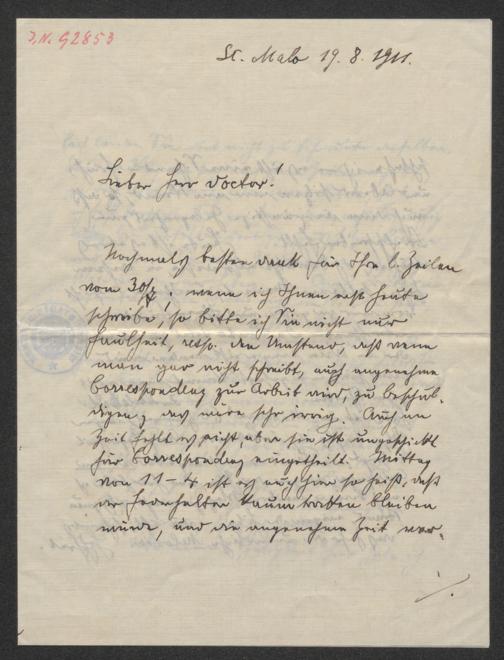 J.N. 92853
St. Malo 19. 8. 1911.
Lieber Herr Doctor!
Nochmals besten Dank für Ihre l. Zeilen
vom 30/7; wenn ich Ihnen erst heute
schreibe, so bitte ich Sie nicht nur
Faulheit, resp. den Umstand, daß wenn
man gar nicht schreibt, auch angenehme
Correspondenz zur Arbeit wird, zu beschul-
digen, das wäre sehr irrig. Auch an
Zeit fehlt es nicht, aber sie ist ungeschickt
für Correspondenz eingetheilt. Mittag
von 11-4 ist es auch hier so heiß, daß
der Federhalter kaum trocken bleiben
würde, und die angenehme Zeit vor-
./.